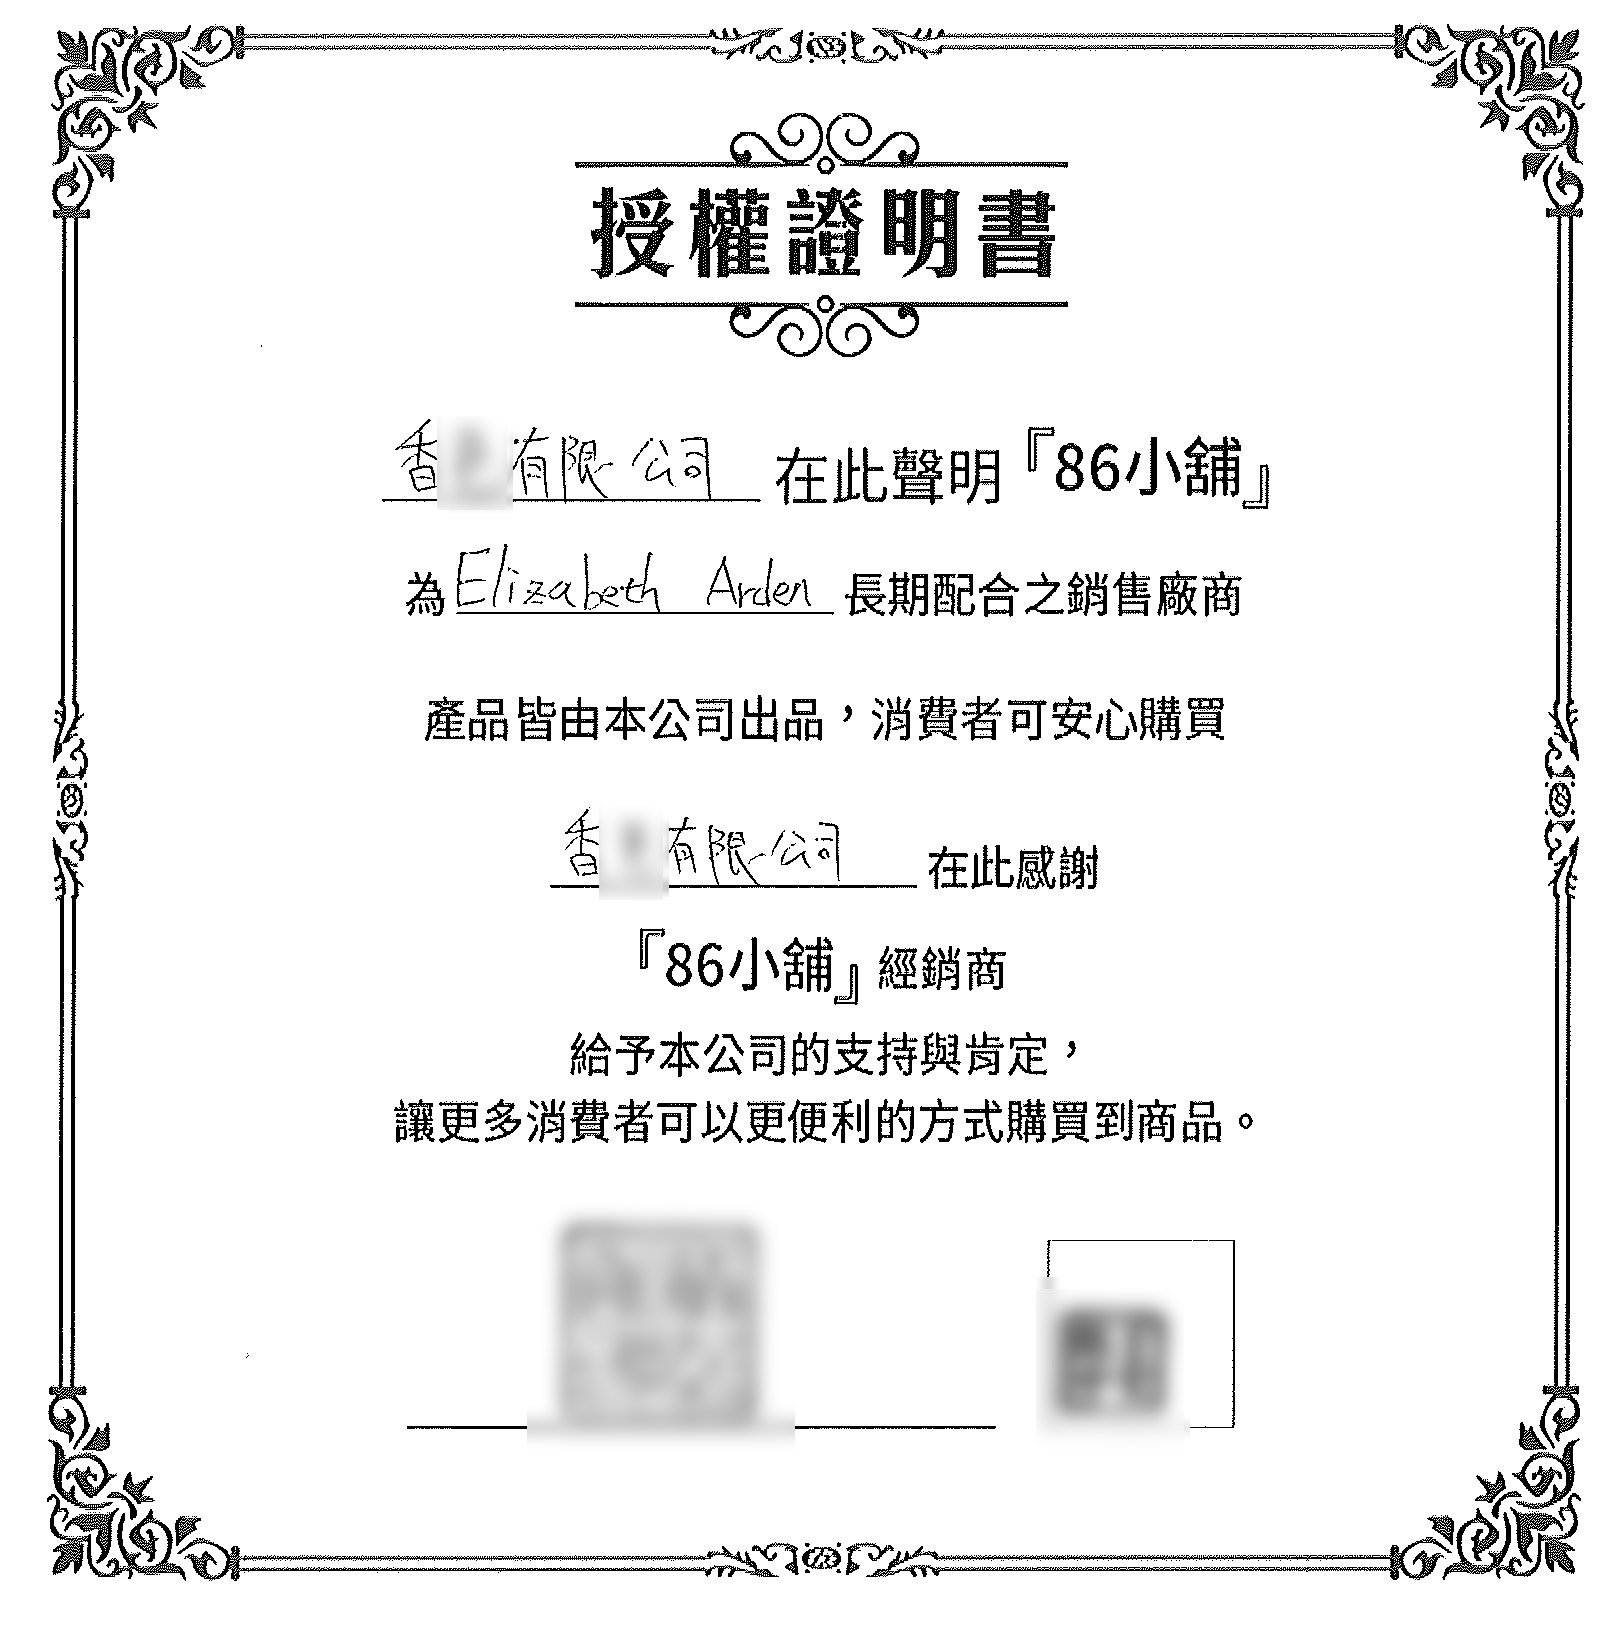 授權證明書
香 有限公司 在此聲明『86小舖』
為 Elizabeth Arden 長期配合之銷售廠商
產品皆由本公司出品，消費者可安心購買
香 有限公司 在此感謝
『86小舖』經銷商
給予本公司的支持與肯定，
讓更多消費者可以更便利的方式購買到商品。